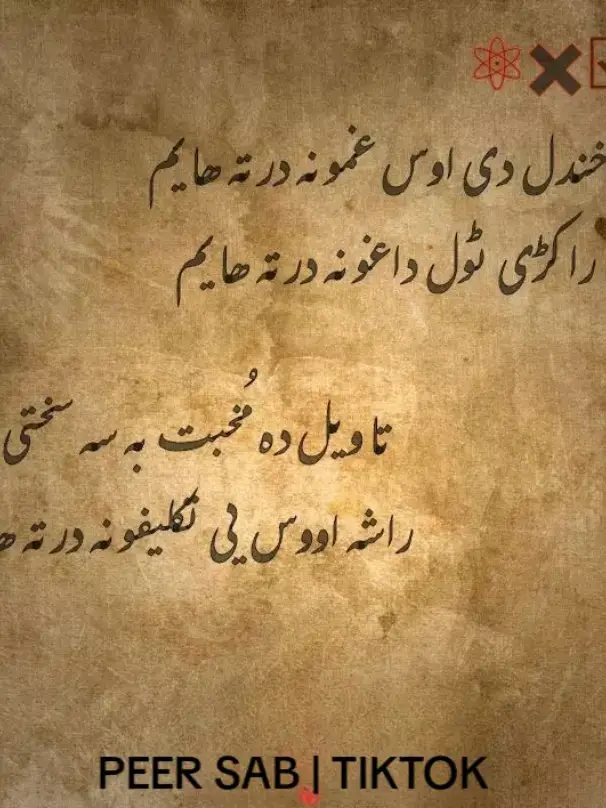 خندل دی اوس غمونه درته هایم
راکړی ټول داغونه درته هایم
تا ویل ده مُحبت به سه سختی
راشه اووس یی تکلیفونه درته
PEER SAB | TIKTOK